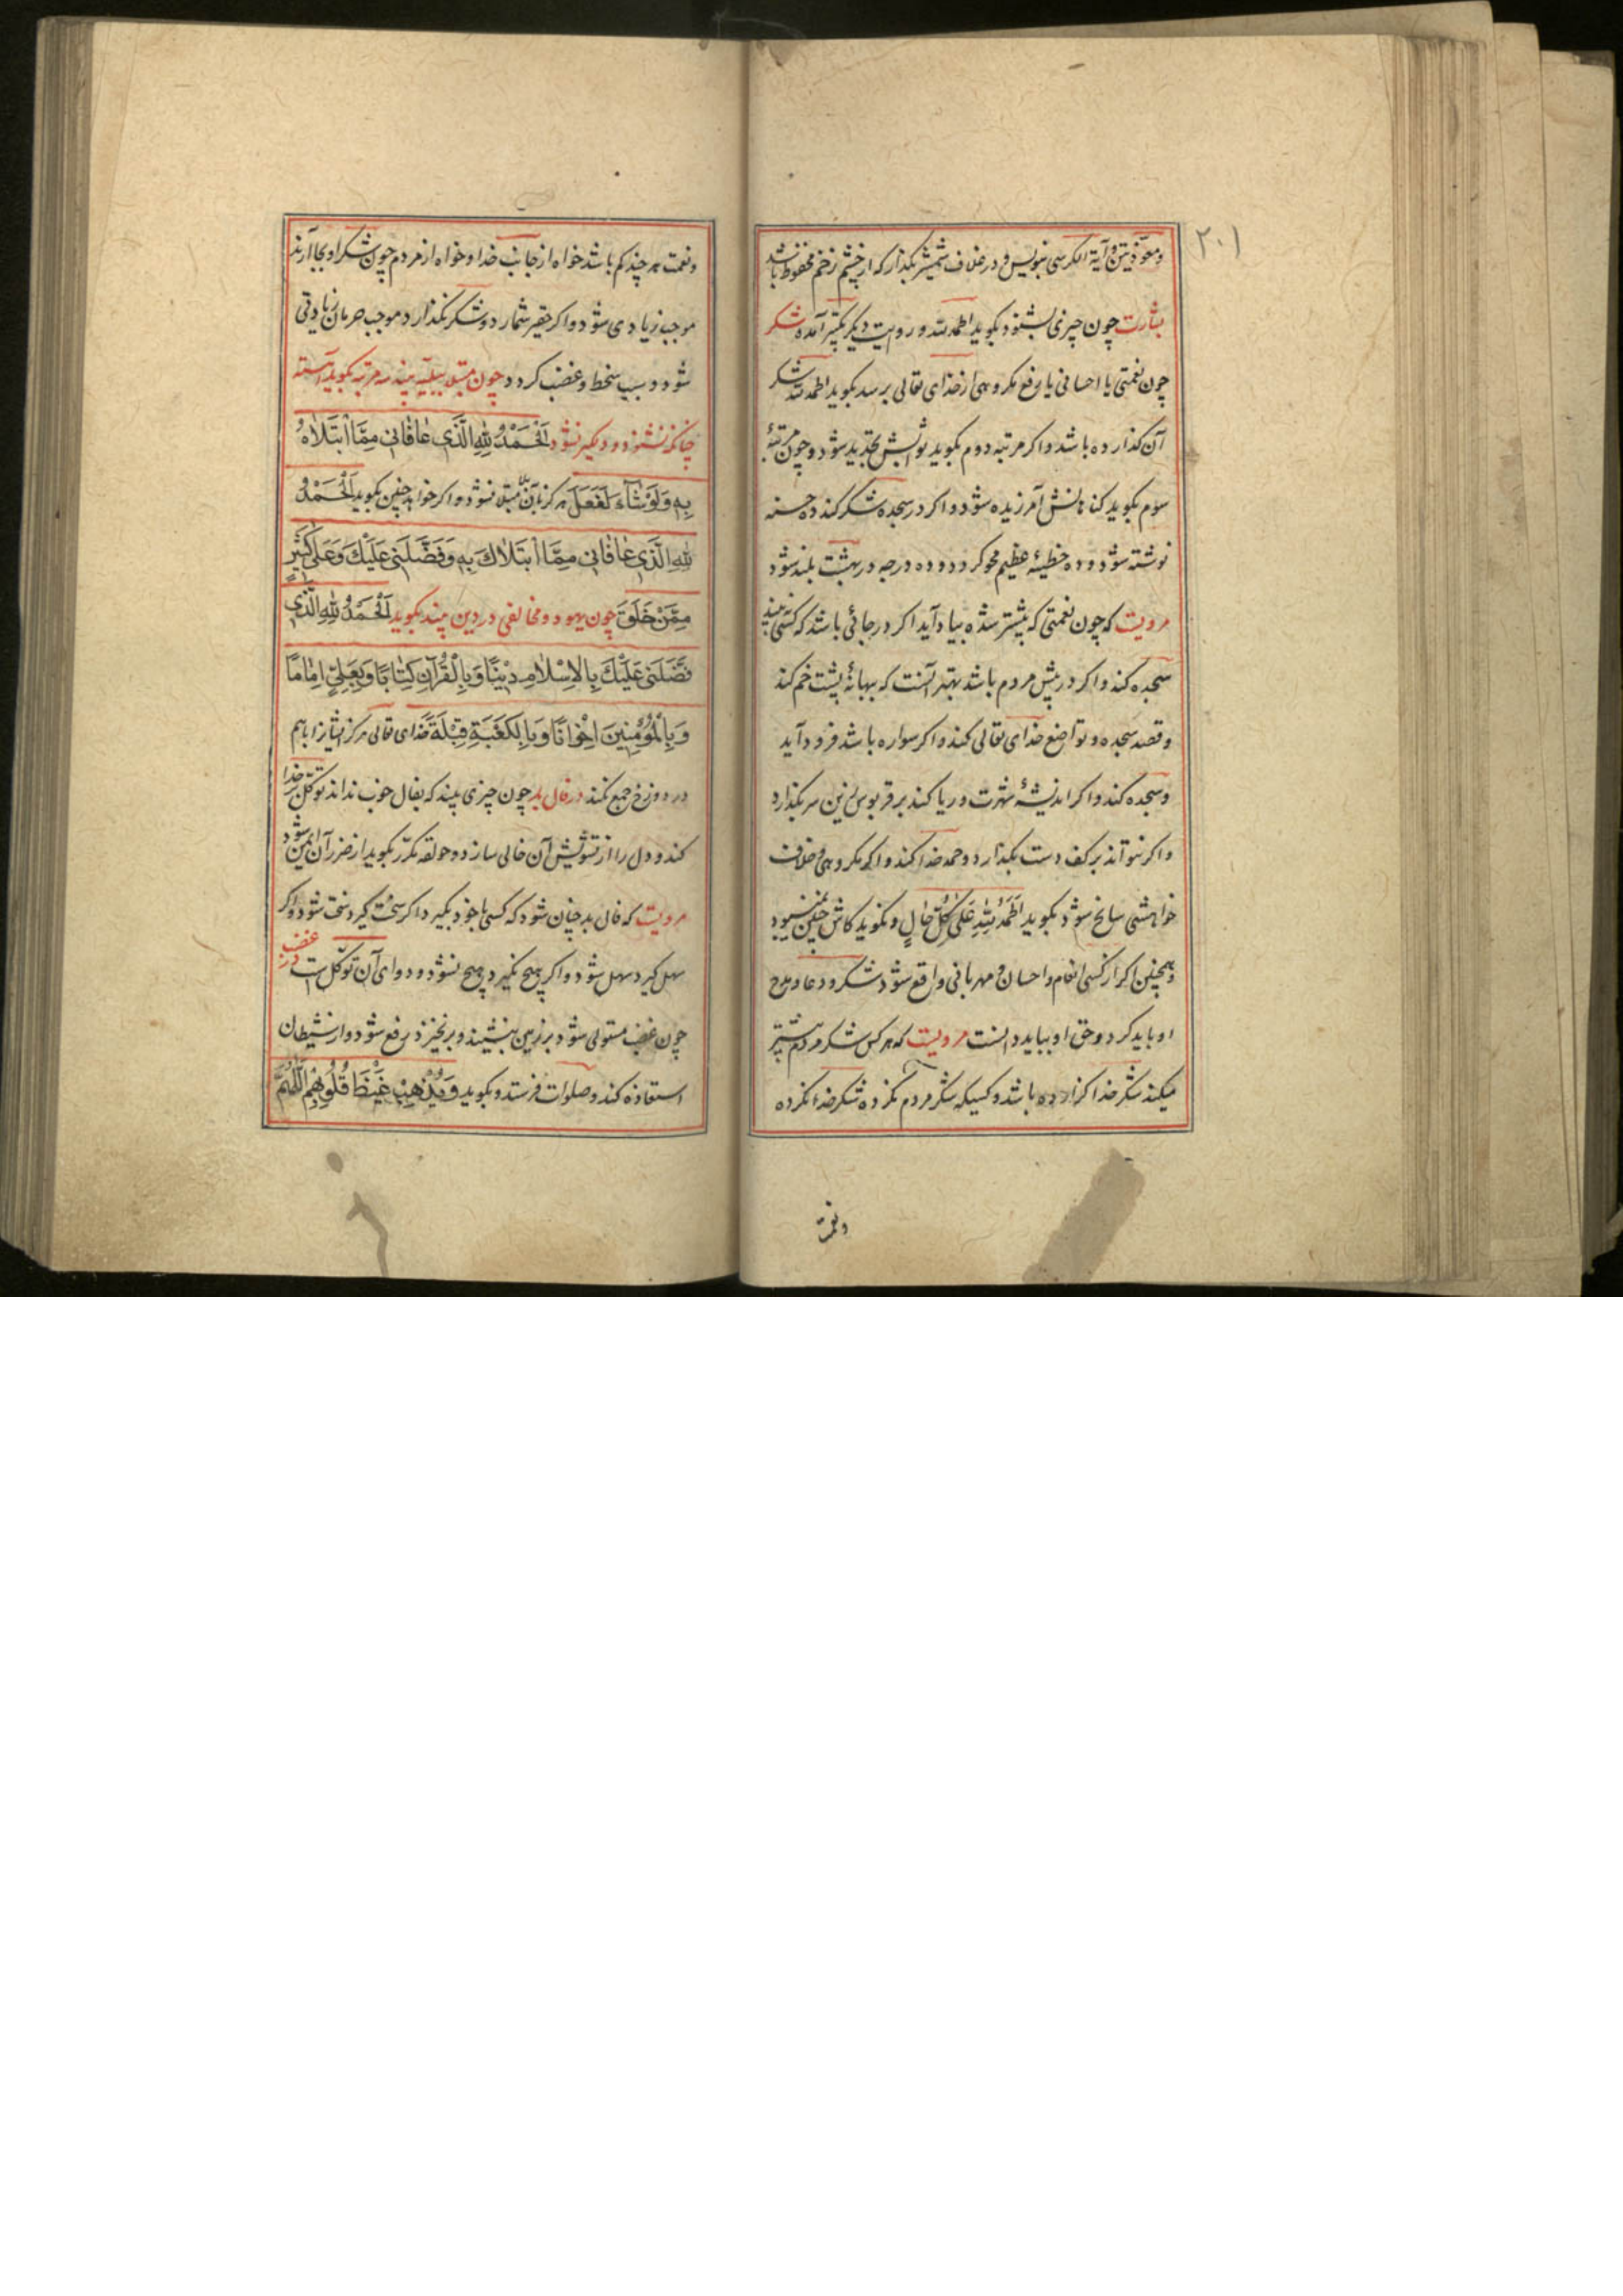 ۲۰۱
ومعوّذتین و آیة الکرسی بنویس و در غلاف شمشیر بکذار که از چشم زخم محفوظ باشد
بشارت چون چیزی بشنود بکوید الحمد لله و در روایت دیکر تکبیر آمده شکر
چون نعمتی یا احسانی یا رفع مکروهی از خدای تعالی برسد بکوید الحمد لله شکر
آن کذارده باشد و اکر مرتبه دوم بکوید ثوابش تجدید شود و چون مرتبهٔ
سوم بکوید کناهانش آمرزیده شود و اکر در سجده شکر کند ده حسنه
نوشته شود و ده خطیئهٔ عظیم محو کردد و ده درجه در بهشت بلند شود
مرویست که چون نعمتی که پیشتر شده بیاد آید اکر در جائی باشد که کسی نه بیند
سجده کند و اکر در پیش مردم باشد بهتر آنست که ببهانهٔ پشت خم کند
و قصد سجده و تواضع خدای تعالی کند و اکر سواره باشد فرود آید
و سجده کند و اکر اندیشهٔ شهرت و ریا کند بر قربوس زین سر بکذارد
و اکر نتواند بر کف دست بکذارد و حمد خدا کند و اکر مکروهی و خلاف
خواهشی سانح شود بکوید الحَمدُ لِلّٰهِ عَلیٰ کُلِّ حٰالٍ و نکوید کاش چنین نمیبود
و همچنین اکر از کسی انعام و احسان و مهربانی واقع شود شکر و دعا و مدح
او باید کرد و حق او بباید دانست مرویست که هر کس شکر مردم بیشتر
میکند شکر خدا کزارده باشد و کسیکه شکر مردم نکرده شکر خدا نکرده
ونعمت
ونعمت هر چند کم باشد خواه از جانب خدا و خواه از مردم چون شکر او بجا آرند
موجب زیادی شود و اکر حقیر شمارد و شکر نکذارد موجب حرمان زیادتی
شود و سبب سخط و غضب کردد چون مبتلا ببلیّه بیند سه مرتبه بکوید آهسته
چنانکه نشنود و دلکیر نشود اَلْحَمْدُ لِلّٰهِ الَّذی عٰافٰانی مِمَّا ابْتَلاٰهُ
بِهِ وَلَوْ شٰآءَ لَفَعَلَ هرکز بآن بلا مبتلا نشود و اکر خواهد چنین بکوید اَلْحَمْدُ
لِلّٰهِ الَّذی عٰافٰانی مِمَّا ابْتَلاٰكَ بِهِ وَفَضَّلَنی عَلَیْكَ وَعَلیٰ کَثیرٍ
مِمَّنْ خَلَقَ چون یهود و مخالفی در دین بیند بکوید اَلْحَمْدُ لِلّٰهِ الَّذی
فَضَّلَنی عَلَیْكَ بِالاِسْلاٰمِ دیناً وَبِالْقُرْآنِ کِتٰاباً وَبِعَلِیٍّ اِمٰاماً
وَبِالْمُؤْمِنینَ اِخْوٰاناً وَبِالکَعْبَةِ قِبْلَةً خدای تعالی هرکز ایشانرا با هم
در دوزخ جمع نکند در فال بد چون چیزی بیند که بفال خوب نداند توکل بر خدا
کند و دل را از تشویش آن خالی سازد و حولقه مکرّر بکوید از ضرر آن ایمن شود
مرویست که فال بد چنان شود که کسی با خود بکیرد اکر سخت کیرد سخت شود و اکر
سهل کیرد سهل شود و اکر هیچ نکیرد هیچ نشود و دوای آن توکّل است در غضب
چون غضب مستولی شود بر زمین بنشیند و برنخیزد رفع شود و از شیطان
استعاذه کند و صلوات فرستد و بکوید وَیُذْهِبْ غَیْظَ قُلُوبِهِمْ اَللّٰهُمَّ